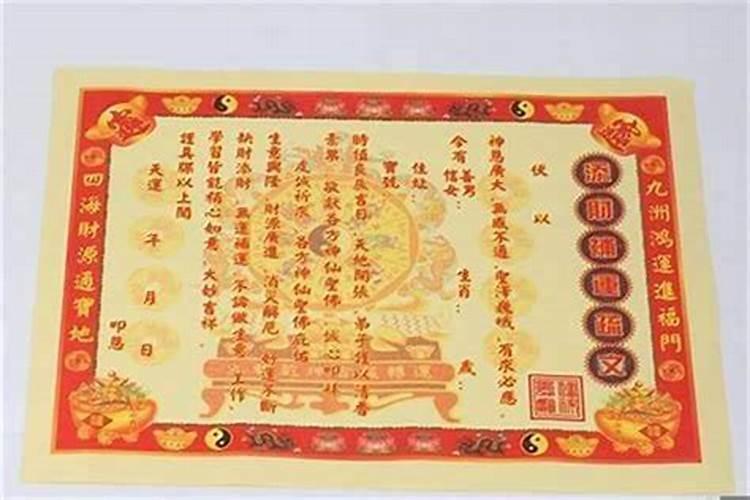 九洲鴻運進福門
添財補運疏文
伏以
神恩廣大 無感不通 聖澤巍峨 有求必應
今有 善男 信女： 生肖： 歲：
住址：
寶號
時值良辰吉日 天地開張 弟子謹以清香
素果 敬獻各方神仙聖佛 誠心叩拜
虔誠祈求 各方神仙聖佛庇佑
生意興隆 財源廣進 消災解厄 好運不斷
缺財添財 無運補運 不論做生意、工作、
學習皆能稱心如意、大妙吉祥、
謹具疏以上聞
天運 年 月 日
叩恩
四海財源通寶地